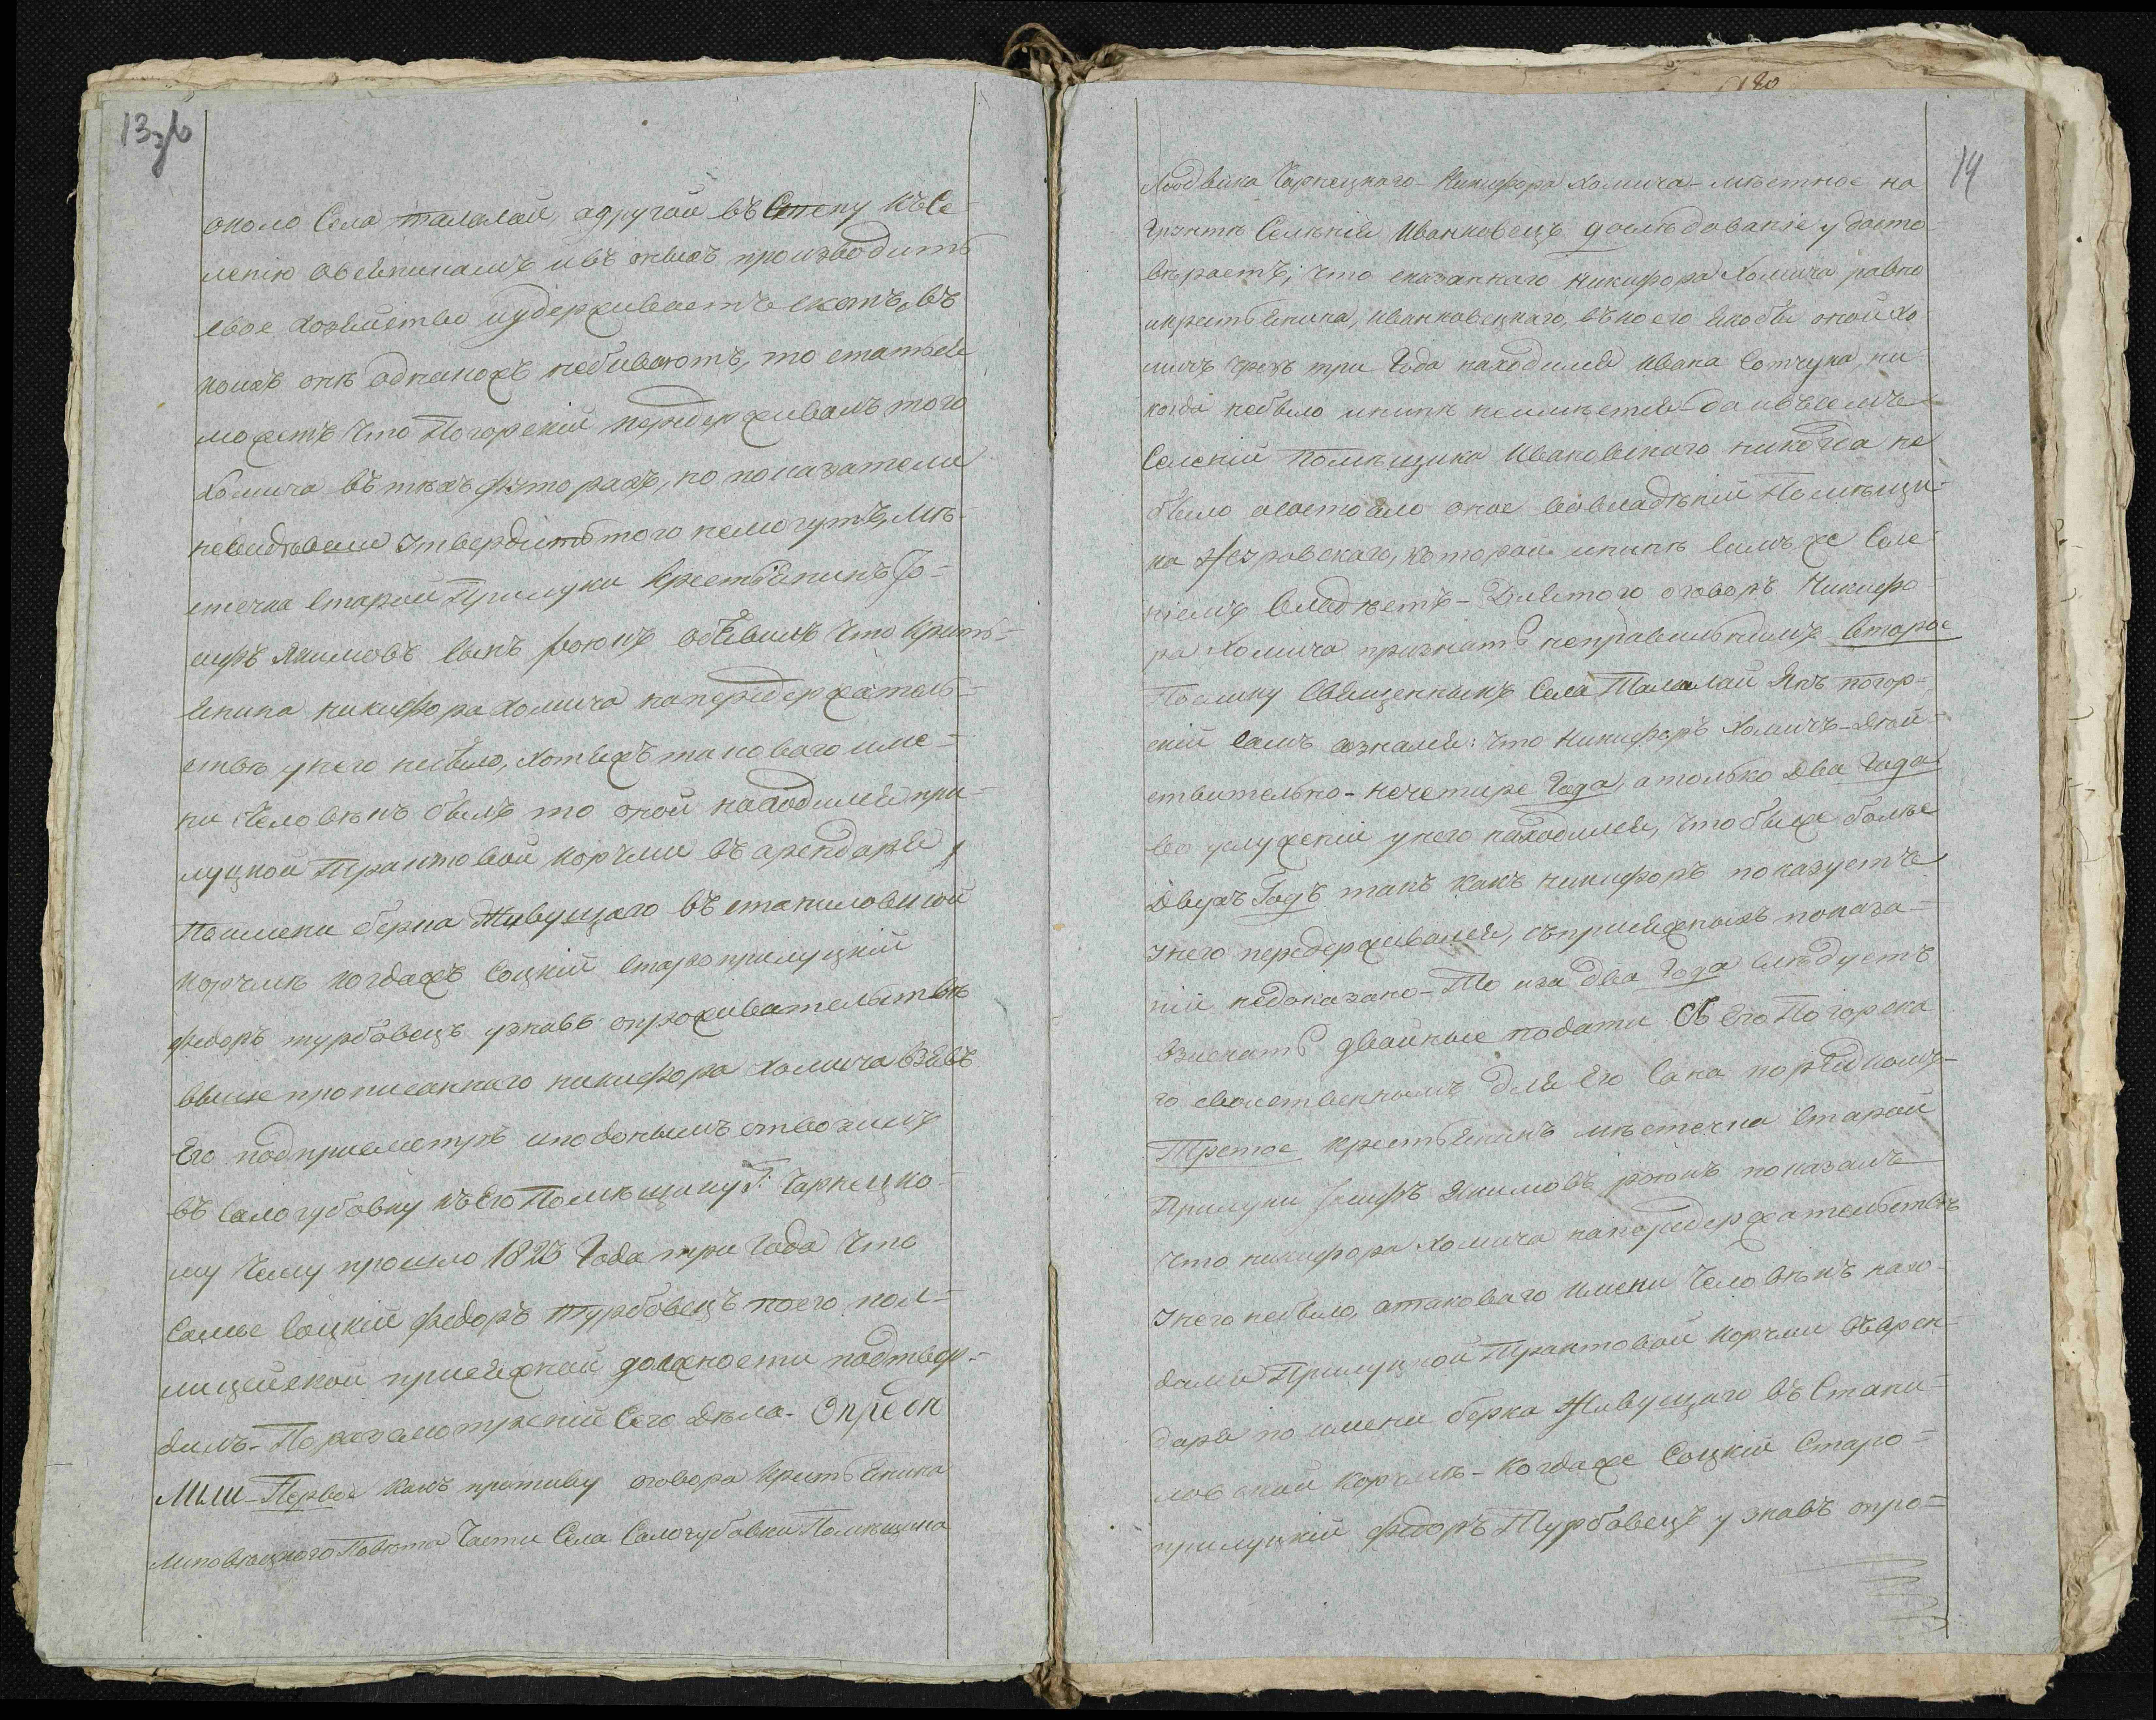 13зв
около Села талалай, адругой въ Степу къ Се-
ленію Овсяникамъ ивъ оныхъ производитъ
свое хозяйство иудерживаетъ скотъ, въ
коихъ онѣ однакожъ небываютъ, то статься
можетъ что Погорскій передерживалъ того
Хомича въ тѣхъ футорахъ, но показатели
невидѣвши утвердить того немогутъ, Мѣ-
стечка Старой Прилуки Крестьянинъ
Якимовъ сынъ объявилъ что Крить-
янина никифора Хомича напередержатель-
ствѣ унего небыло, хотяжъ таковаго име-
ни Человѣкъ былъ то оной находился при-
луцкой Трактовой корчми въ арендаря
поимени берка Живущаго въ станиловской
корчмѣ когдажъ Соцкій старо прилуцкій
федоръ турбовецъ узнавъ
выше прописаннаго никифора Хомича взявъ
Его подприсмотръ
въ Самогубовку къ Его Помѣщику Г: Чарнецко-
му Чему прошло 1823 Года три Года Что
Самые Соцкій федоръ Турбовецъ поего пол-
лицейской присяжной должности подтвер-
дилъ- Поразсмотреніи Сего Дѣла- Опреде
лили- Первое Какъ противу оговора Крить Янина
Липовецкого Повѣта Части Села Самогубовки Помѣщика
180
14
Людвика Чарнецкаго- Никифора Хомича- мѣстное на
Грунтѣ Селенія Иванковецъ дослѣдованіе удосто-
вѣряетъ; что сказаннаго Никифора Хомича равно
икрестьянина, Иванковецкаго, въ коего якобы оной Хо
мичъ чрезъ три Года находился Ивана Сотчука, ни
когда небыло инынѣ неимѣется- да ивъсемъ
Селеніи Помѣщика Ивановскаго никогда не
было асостояло оное вовладѣніи Помѣщи-
ка которой инынѣ Симъ же Селе-
ніемъ Владѣетъ- Для того оговоръ Никифо-
ра Хомича признать неправильнымъ Второе
Поелику Священникъ Села Талалай Янъ погор-
скій Самъ сознался: Что Никифоръ Хомичъ- Дѣй-
ствительно- нечетыре Года, а только Два Года
во услуженіи унего находился, что быже болѣе
Двухъ Годъ такъ какъ никифоръ показуетъ
унего передерживался, съприсяжныхъ показа-
ній недоказано- То иза два Года слѣдуетъ
взыскать двойные подати Съ Его Погорска
го свойственнымъ Для Его Сана порядкомъ-
Третое Крестьянинъ мѣстечка Старой
Прилуки Якимовъ показалъ
Что никифора Хомича напередержательствѣ
унего небыло, атаковаго имени Человѣкъ нахо-
дился Прилуцкой Трактовой корчми въ арен-
даря по имени берка Живущаго въ Стани-
ловской корчмѣ- Когдаже Соцкій Старо-
прилуцкій федоръ Турбовецъ узнавъ опро-